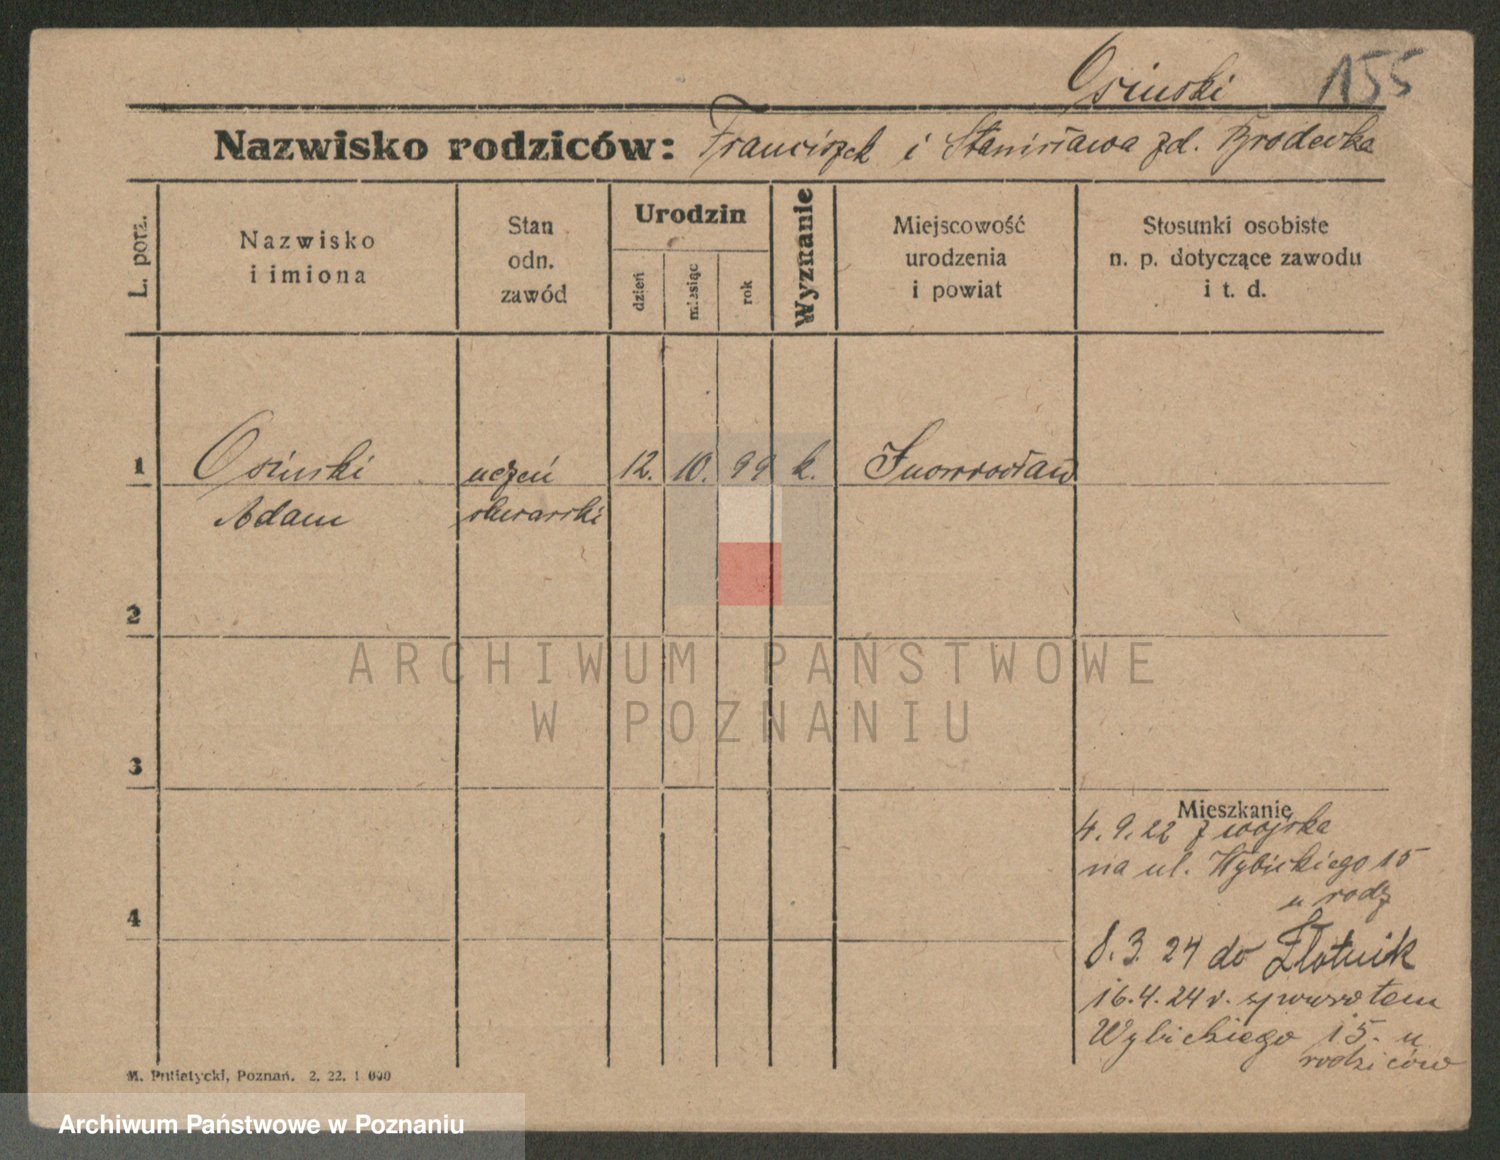 Osinski 155
Nazwisko rodziców: Franciszek i Stanisława zd. Brodecka
L. porz.
Nazwisko
i imiona
Stan
odn.
zawód
Urodzin
dzień
miesiąc
rok
Wyznanie
Miejscowość
urodzenia
i powiat
Stosunki osobiste
n. p. dotyczące zawodu
i t. d.
1 Osinski uczeń 12. 10. 99 k. Inowrocław
Adam
2
ARCHIWUM PAŃSTWOWE
W POZNANIU
3
Mieszkanie
4. 9. 22 z wojska
na ul. Wybickiego 15
u rodz
4
8. 3. 24 do Złotnik
16. 4. 24 r. z powrotem
Wybickiego 15. u
rodziców
M. Putiatycki, Poznań. 2. 22. 1 000
Archiwum Państwowe w Poznaniu